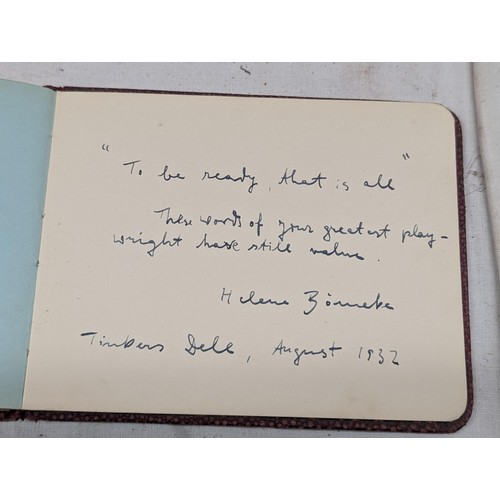 "To be ready, that is all"
These words of your greatest play-
wright have still value.
Helene Bömeke
Tinkers Dell, August 1932